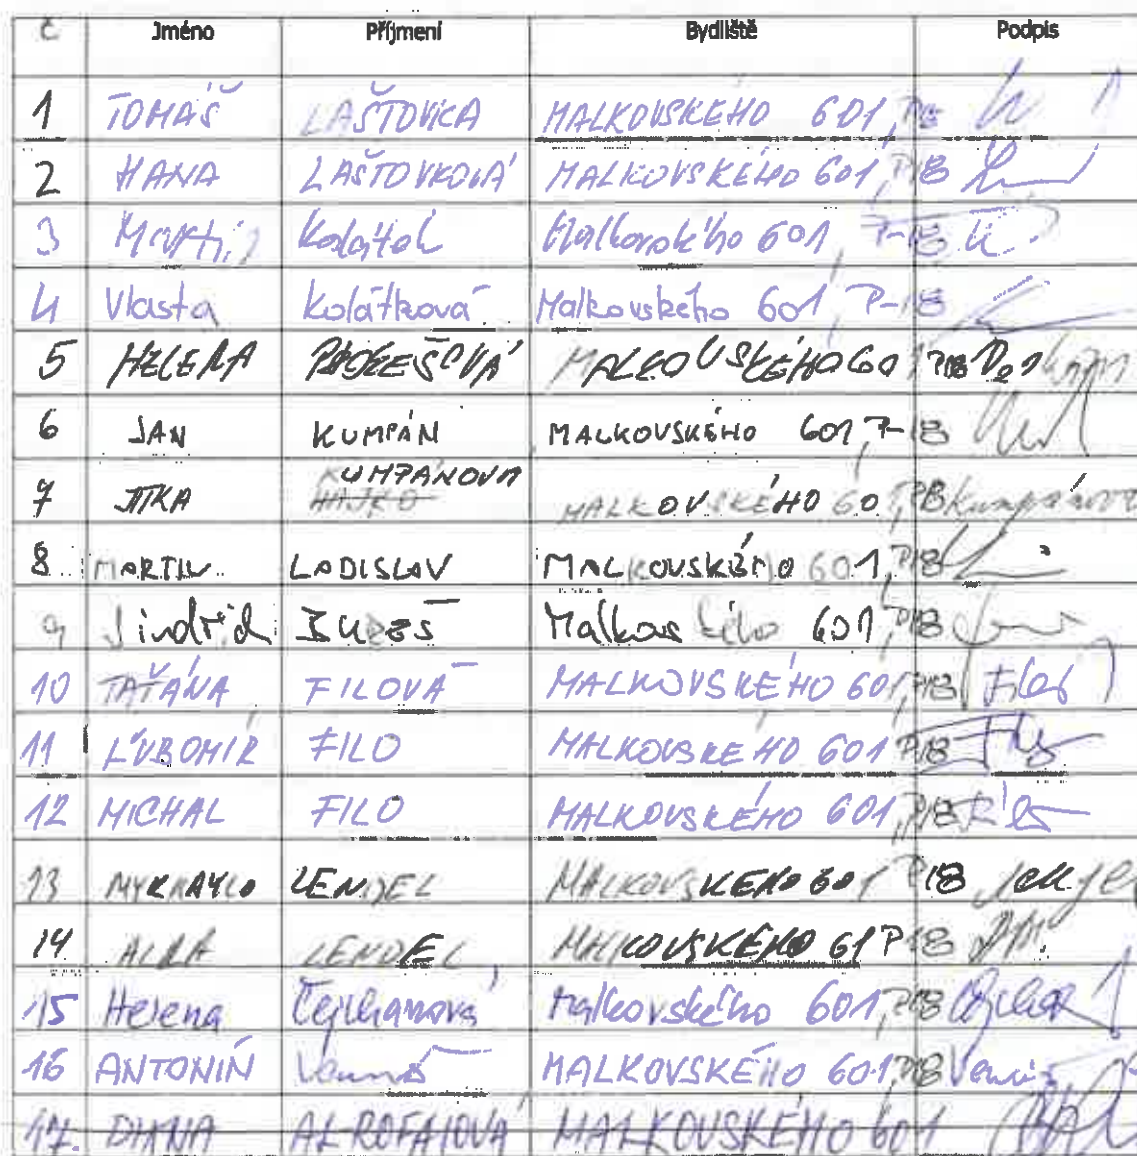 č Jméno Příjmení Bydliště Podpis
1 TOMÁŠ LAŠTOVKA MALKOVSKÉHO 601, P18
2 HANA LAŠTOVKOVÁ MALKOVSKÉHO 601, P18
3 Martin Kolátek Malkovského 601, P-18
4 Vlasta Kolátková Malkovského 601, P-18
5 HELENA MALKOVSKÉHO 601 P18
6 JAN KUMPÁN MALKOVSKÉHO 601, P-18
KUMPÁNOVÁ
7 JITKA HAJKO MALKOVSKÉHO 60, P18 Kumpánová
8 MARTIN LADISLAV MALKOVSKÉHO 601, P18
9 Jindřich Malkovského 601, P18
10 TAŤÁNA FILOVÁ MALKOVSKÉHO 601, P18
11 ĽUBOMÍR FILO MALKOVSKÉHO 601 P18
12 MICHAL FILO MALKOVSKÉHO 601, P18
13 MYKHAYLO LENDEL MALKOVSKEHO 601 P18
14 ALLA LENDEL MALKOVSKÉHO 61 P18
15 Helena Malkovského 601, P18
16 ANTONÍN MALKOVSKÉHO 601, P18
17. DIANA AL ROFAIOVÁ MALKOVSKÉHO 601